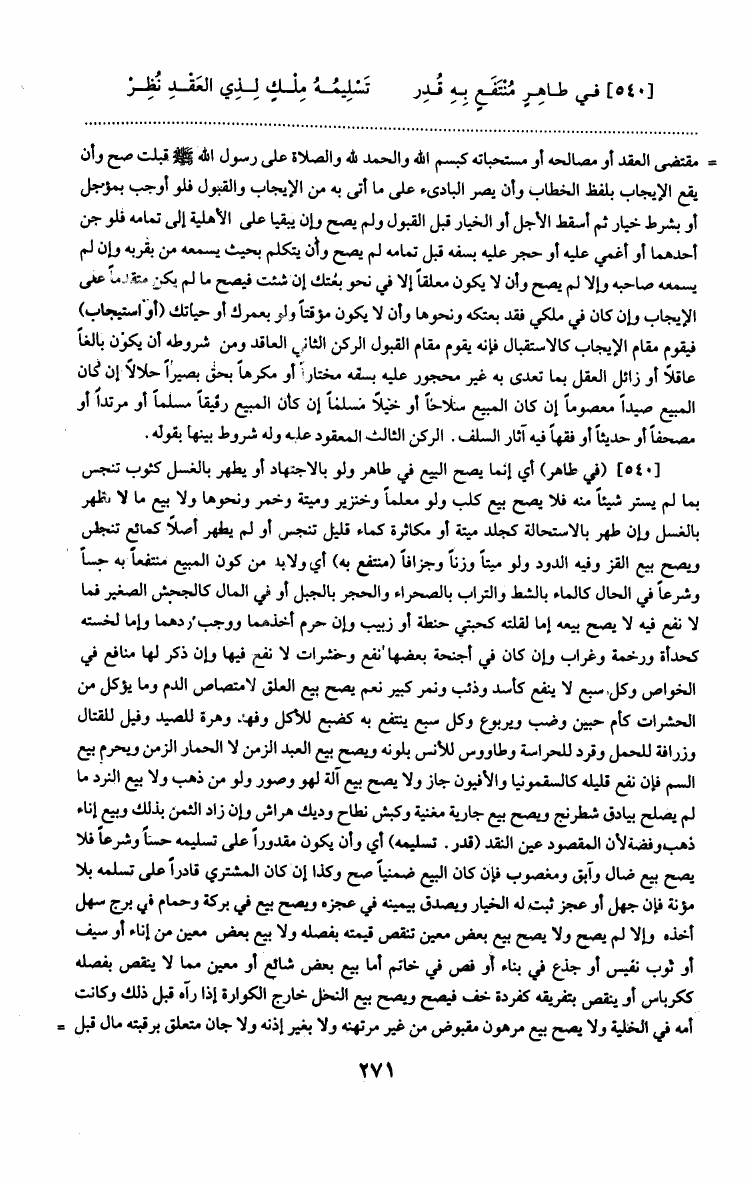 [٥٤٠] فـي طـاهِـرٍ مُنْتَفَعٍ بِـهِ قُـدِر تَسْلِيمُـهُ مِلْـكٍ لِـذِي العَقْـدِ نُظِـرْ
= مقتضى العقد أو مصالحه أو مستحباته كبسم الله والحمد لله والصلاة على رسول الله ﷺ قبلت صح وأن
يقع الإيجاب بلفظ الخطاب وأن يصر البادىء على ما أتى به من الإيجاب والقبول فلو أوجب بمؤجل
أو بشرط خيار ثم أسقط الأجل أو الخيار قبل القبول ولم يصح وإن يبقيا على الأهلية إلى تمامه فلو جن
أحدهما أو أغمي عليه أو حجر عليه بسفه قبل تمامه لم يصح وأن يتكلم بحيث يسمعه من بقربه وإن لم
يسمعه صاحبه وإلا لم يصح وأن لا يكون معلقاً إلا في نحو بعتك إن شئت فيصح ما لم يكن متقدماً على
الإيجاب وإن كان في ملكي فقد بعتكه ونحوها وأن لا يكون مؤقتاً ولو بعمرك أو حياتك (أو استيجاب)
فيقوم مقام الإيجاب كالاستقبال فإنه يقوم مقام القبول الركن الثاني العاقد ومن شروطه أن يكون بالغاً
عاقلاً أو زائل العقل بما تعدى به غير محجور عليه بسفه مختاراً أو مكرهاً بحق بصيراً حلالاً إن كان
المبيع صيداً معصوماً إن كان المبيع سلاحاً أو خيلاً مسلماً إن كان المبيع رقيقاً مسلماً أو مرتداً أو
مصحفاً أو حديثاً أو فقهاً فيه آثار السلف. الركن الثالث المعقود عليه وله شروط بينها بقوله.
[٥٤٠] (في طاهر) أي إنما يصح البيع في طاهر ولو بالاجتهاد أو يطهر بالغسل كثوب تنجس
بما لم يستر شيئاً منه فلا يصح بيع كلب ولو معلماً وخنزير وميتة وخمر ونحوها ولا بيع ما لا يطهر
بالغسل وإن طهر بالاستحالة كجلد ميتة أو مكاثرة كماء قليل تنجس أو لم يطهر أصلاً كمائع تنجس
ويصح بيع القز وفيه الدود ولو ميتاً وزناً وجزافاً (منتفع به) أي ولابد من كون المبيع منتفعاً به حساً
وشرعاً في الحال كالماء بالشط والتراب بالصحراء والحجر بالجبل أو في المال كالجحش الصغير فما
لا نفع فيه لا يصح بيعه إما لقلته كحبتي حنطة أو زبيب وإن حرم أخذهما ووجب ردهما وإما لخسته
كحدأة ورخمة وغراب وإن كان في أجنحة بعضها نفع وحشرات لا نفع فيها وإن ذكر لها منافع في
الخواص وكل سبع لا ينفع كأسد وذئب ونمر كبير نعم يصح بيع العلق لامتصاص الدم وما يؤكل من
الحشرات كأم حبين وضب ويربوع وكل سبع ينتفع به كضبع للأكل وفهد وهرة للصيد وفيل للقتال
وزرافة للحمل وقرد للحراسة وطاووس للأنس بلونه ويصح بيع العبد الزمن لا الحمار الزمن ويحرم بيع
السم فإن نفع قليله كالسقمونيا والأفيون جاز ولا يصح بيع آلة لهو وصور ولو من ذهب ولا بيع النرد ما
لم يصلح بيادق شطرنج ويصح بيع جارية مغنية وكبش نطاح وديك هراش وإن زاد الثمن بذلك وبيع إناء
ذهب وفضة لأن المقصود عين النقد (قدر. تسليمه) أي وأن يكون مقدوراً على تسليمه حساً وشرعاً فلا
يصح بيع ضال وآبق ومغصوب فإن كان البيع ضمنياً صح وكذا إن كان المشتري قادراً على تسلمه بلا
مؤنة فإن جهل أو عجز ثبت له الخيار ويصدق بيمينه في عجزه ويصح بيع في بركة وحمام في برج سهل
أخذه وإلا لم يصح ولا يصح بيع بعض معين تنقص قيمته بفصله ولا بيع بعض معين من إناء أو سيف
أو ثوب نفيس أو جذع في بناء أو فص في خاتم أما بيع بعض شائع أو معين مما لا ينقص بفصله
ككرباس أو ينقص بتفريقه كفردة خف فيصح ويصح بيع النحل خارج الكوارة إذا رآه قبل ذلك وكانت
أمه في الخلية ولا يصح بيع مرهون مقبوض من غير مرتهنه ولا بغير إذنه ولا جان متعلق برقبته مال قبل =
٢٧١